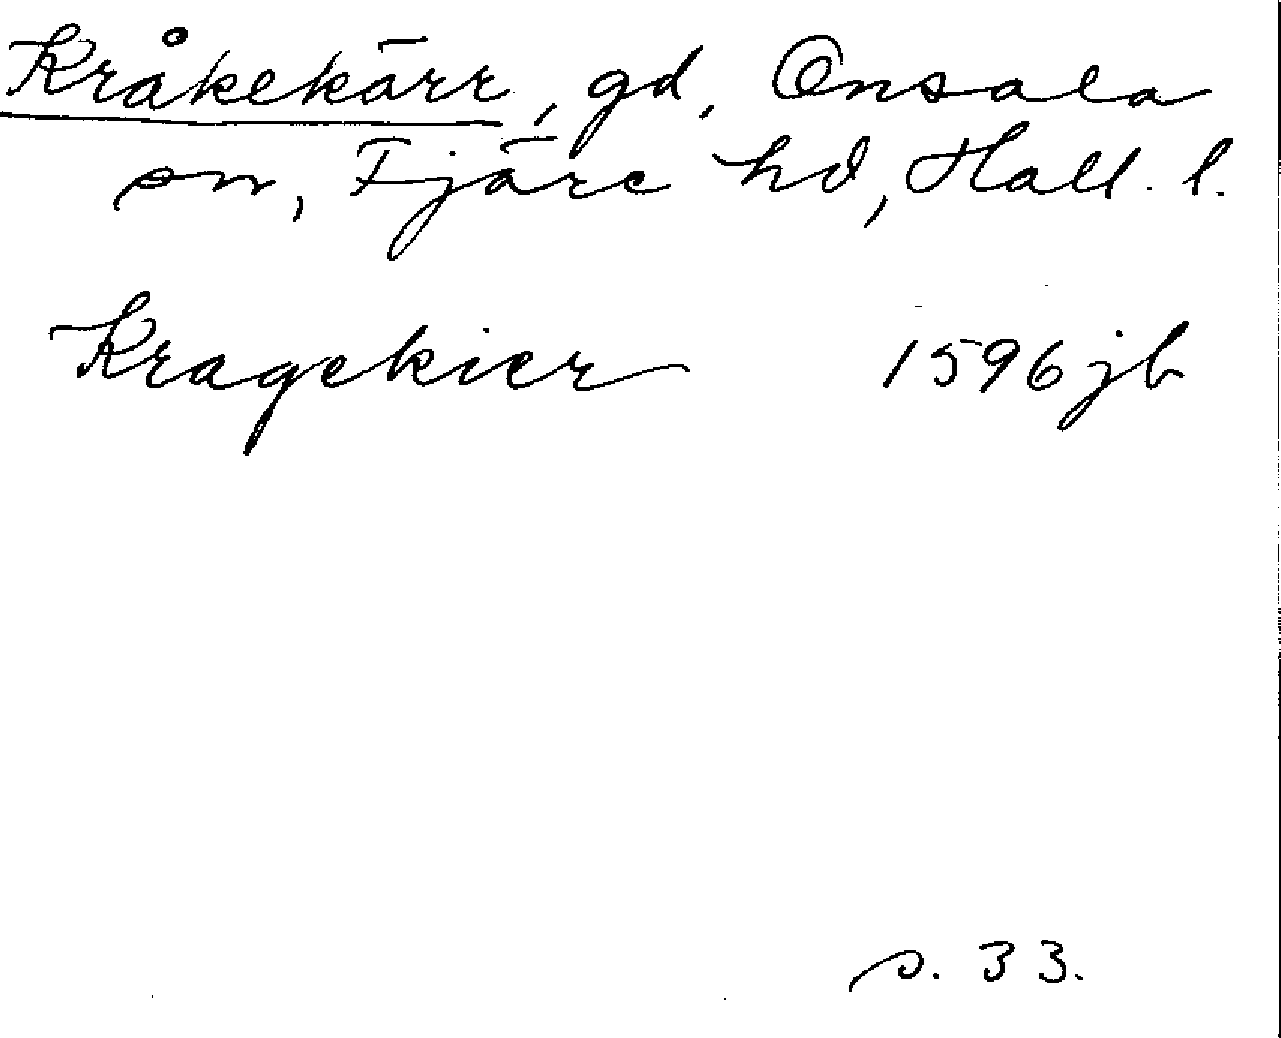 Kråkekärr, gd, Onsala
sn, Fjäre hd, Hall. l.
Kragekier 1596 jb
s. 33.